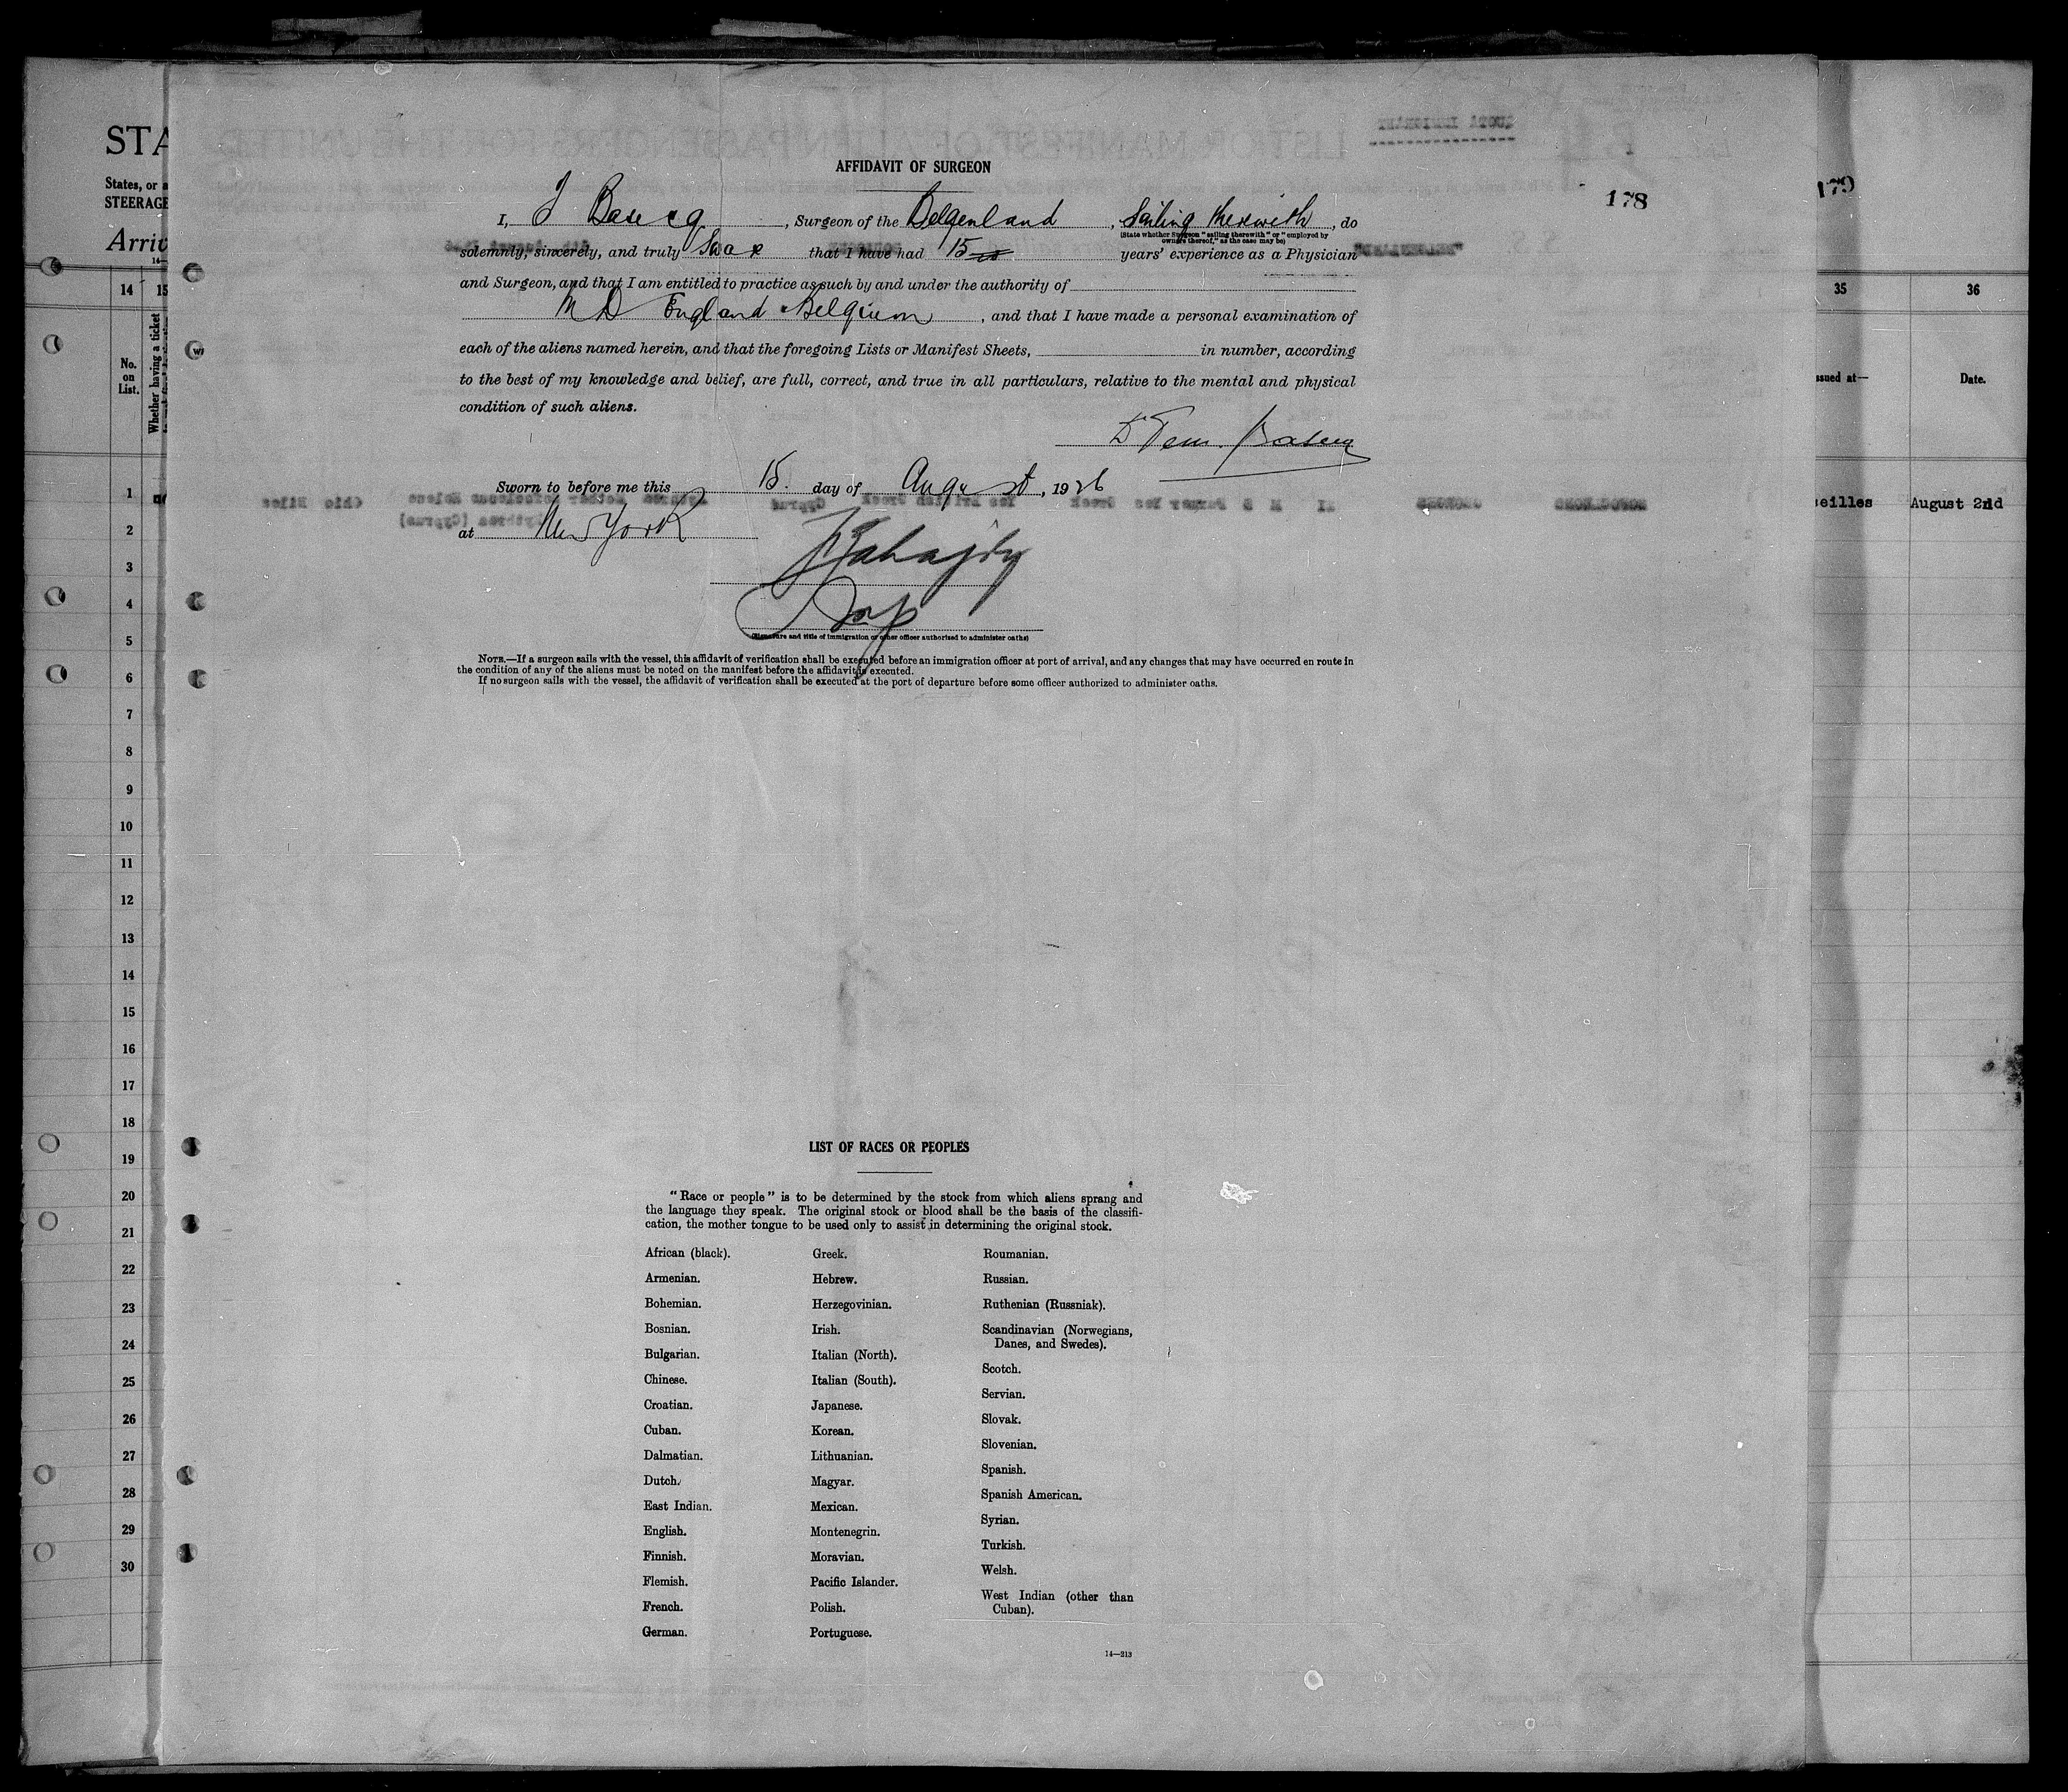 STA
States, or a
STEERAGE
Arriv
14 15
No.
on
List.
Whether having a ticket
1
2
3
4
5
6
7
8
9
10
11
12
13
14
15
16
17
18
19
20
21
22
23
24
25
26
27
28
29
30
AFFIDAVIT OF SURGEON
178
I, , Surgeon of the Belgenland, Sailing therewith, do
(State whether Surgeon "sailing therewith" or "employed by
owners thereof," as the case may be)
solemnly, sincerely, and truly that I have had 15 years' experience as a Physician
and Surgeon, and that I am entitled to practice as such by and under the authority of
M D England Belgium, and that I have made a personal examination of
each of the aliens named herein, and that the foregoing Lists or Manifest Sheets, in number, according
to the best of my knowledge and belief, are full, correct, and true in all particulars, relative to the mental and physical
condition of such aliens.
Sworn to before me this 15. day of August, 1926
at New York
(Signature and title of immigration or other officer authorized to administer oaths)
NOTE.—If a surgeon sails with the vessel, this affidavit of verification shall be executed before an immigration officer at port of arrival, and any changes that may have occurred en route in
the condition of any of the aliens must be noted on the manifest before the affidavit is executed.
If no surgeon sails with the vessel, the affidavit of verification shall be executed at the port of departure before some officer authorized to administer oaths.
LIST OF RACES OR PEOPLES
"Race or people" is to be determined by the stock from which aliens sprang and
the language they speak. The original stock or blood shall be the basis of the classifi-
cation, the mother tongue to be used only to assist in determining the original stock.
African (black).
Armenian.
Bohemian.
Bosnian.
Bulgarian.
Chinese.
Croatian.
Cuban.
Dalmatian.
Dutch.
East Indian.
English.
Finnish.
Flemish.
French.
German.
Greek.
Hebrew.
Herzegovinian.
Irish.
Italian (North).
Italian (South).
Japanese.
Korean.
Lithuanian.
Magyar.
Mexican.
Montenegrin.
Moravian.
Pacific Islander.
Polish.
Portuguese.
Roumanian.
Russian.
Ruthenian (Russniak).
Scandinavian (Norwegians,
Danes, and Swedes).
Scotch.
Servian.
Slovak.
Slovenian.
Spanish.
Spanish American.
Syrian.
Turkish.
Welsh.
West Indian (other than
Cuban).
14—213
179
35 36
ssued at— Date.
seilles August 2nd